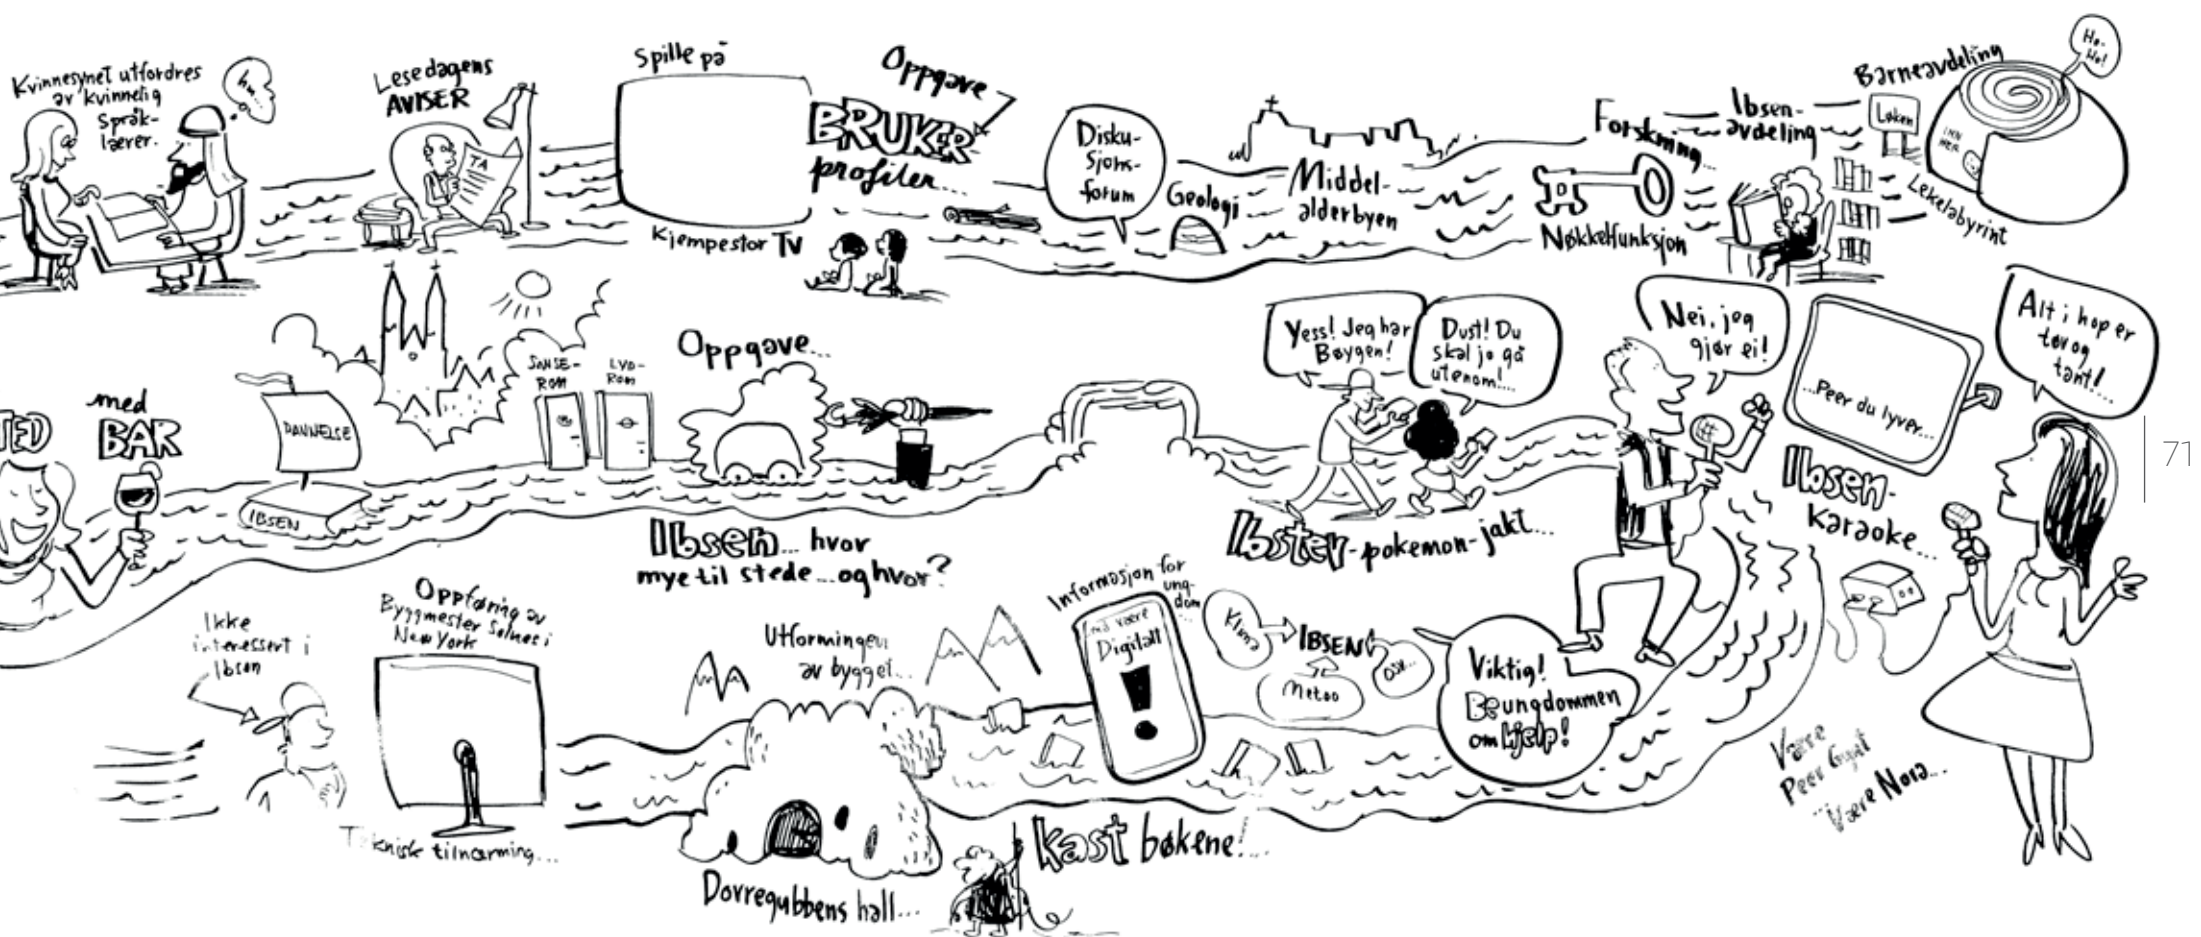 Kvinnesynet utfordres
av kvinnelig
Språk-
lærer.
hm...
Lese dagens
AVISER
TA
Spille på
Kjempestor TV
Oppgave
BRUKER-
profiler...
Disku-
sjons-
forum
Geologi
Middel-
alderbyen
Forskning...
Nøkkelfunksjon
Ibsen-
avdeling
Barneavdeling
Løken
INN
HER
Lekelabyrint
Ho-
Ho!
TED
med
BAR
DANNELSE
IBSEN
SANSE-
ROM
LYD-
ROM
Oppgave...
Ibsen... hvor
mye til stede ... og hvor?
Yess! Jeg har
Bøygen!
Dust! Du
skal jo gå
utenom!....
Ibster-pokemon-jakt...
Nei, jeg
gjør ei!
...Peer du lyver...
Ibsen-
Karaoke...
Alt i hop er
tøv og
tant!....
71
Ikke
interessert i
Ibsen
Oppføring av
Byggmester Solness i
New York
Teknisk tilnærming...
Utformingen
av bygget...
Dovregubbens hall...
Informasjon for
ung-
dom
være
Digitalt
!
Kast bøkene!...
Klima
IBSEN
Metoo
osv...
Viktig!
Be ungdommen
om hjelp!
Være
Peer Gynt
...Være Nora...